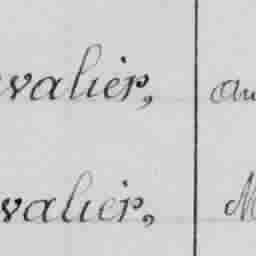 valier, au
valier, M